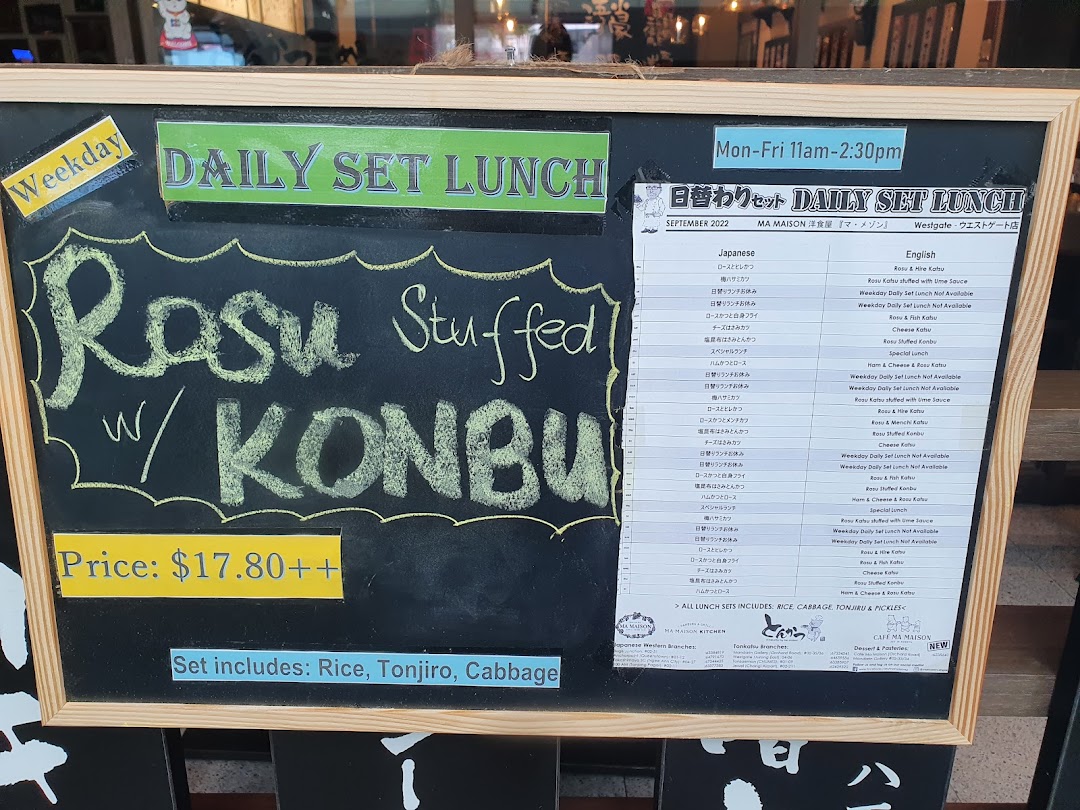 Weekday
DAILY SET LUNCH
Mon-Fri 11am-2:30pm
Rosu Stuffed
w/ KONBU
Price: $17.80++
Set includes: Rice, Tonjiro, Cabbage
日替わりセット DAILY SET LUNCH
SEPTEMBER 2022 MA MAISON 洋食屋『マ・メゾン』 Westgate - ウエストゲート店
Japanese English
ロースとヒレかつ Rosu & Hire Katsu
梅ハサミカツ Rosu Katsu stuffed with Ume Sauce
日替りランチお休み Weekday Daily Set Lunch Not Available
日替りランチお休み Weekday Daily Set Lunch Not Available
ロースかつと白身フライ Rosu & Fish Katsu
チーズはさみカツ Cheese Katsu
塩昆布はさみとんかつ Rosu Stuffed Konbu
スペシャルランチ Special Lunch
ハムかつとロース Ham & Cheese & Rosu Katsu
日替りランチお休み Weekday Daily Set Lunch Not Available
日替りランチお休み Weekday Daily Set Lunch Not Available
梅ハサミカツ Rosu Katsu stuffed with Ume Sauce
ロースとヒレかつ Rosu & Hire Katsu
ロースかつとメンチカツ Rosu & Menchi Katsu
塩昆布はさみとんかつ Rosu Stuffed Konbu
チーズはさみカツ Cheese Katsu
日替りランチお休み Weekday Daily Set Lunch Not Available
日替りランチお休み Weekday Daily Set Lunch Not Available
ロースかつと白身フライ Rosu & Fish Katsu
塩昆布はさみとんかつ Rosu Stuffed Konbu
ハムかつとロース Ham & Cheese & Rosu Katsu
スペシャルランチ Special Lunch
梅ハサミカツ Rosu Katsu stuffed with Ume Sauce
日替りランチお休み Weekday Daily Set Lunch Not Available
日替りランチお休み Weekday Daily Set Lunch Not Available
ロースとヒレかつ Rosu & Hire Katsu
ロースかつと白身フライ Rosu & Fish Katsu
チーズはさみカツ Cheese Katsu
塩昆布はさみとんかつ Rosu Stuffed Konbu
ハムかつとロース Ham & Cheese & Rosu Katsu
> ALL LUNCH SETS INCLUDES: RICE, CABBAGE, TONJIRU & PICKLES<
MA MAISON
MA MAISON KITCHEN
とんかつ
CAFÉ MA MAISON
Japanese Western Branches:
Tonkatsu Branches:
Dessert & Pasteries:
NEW